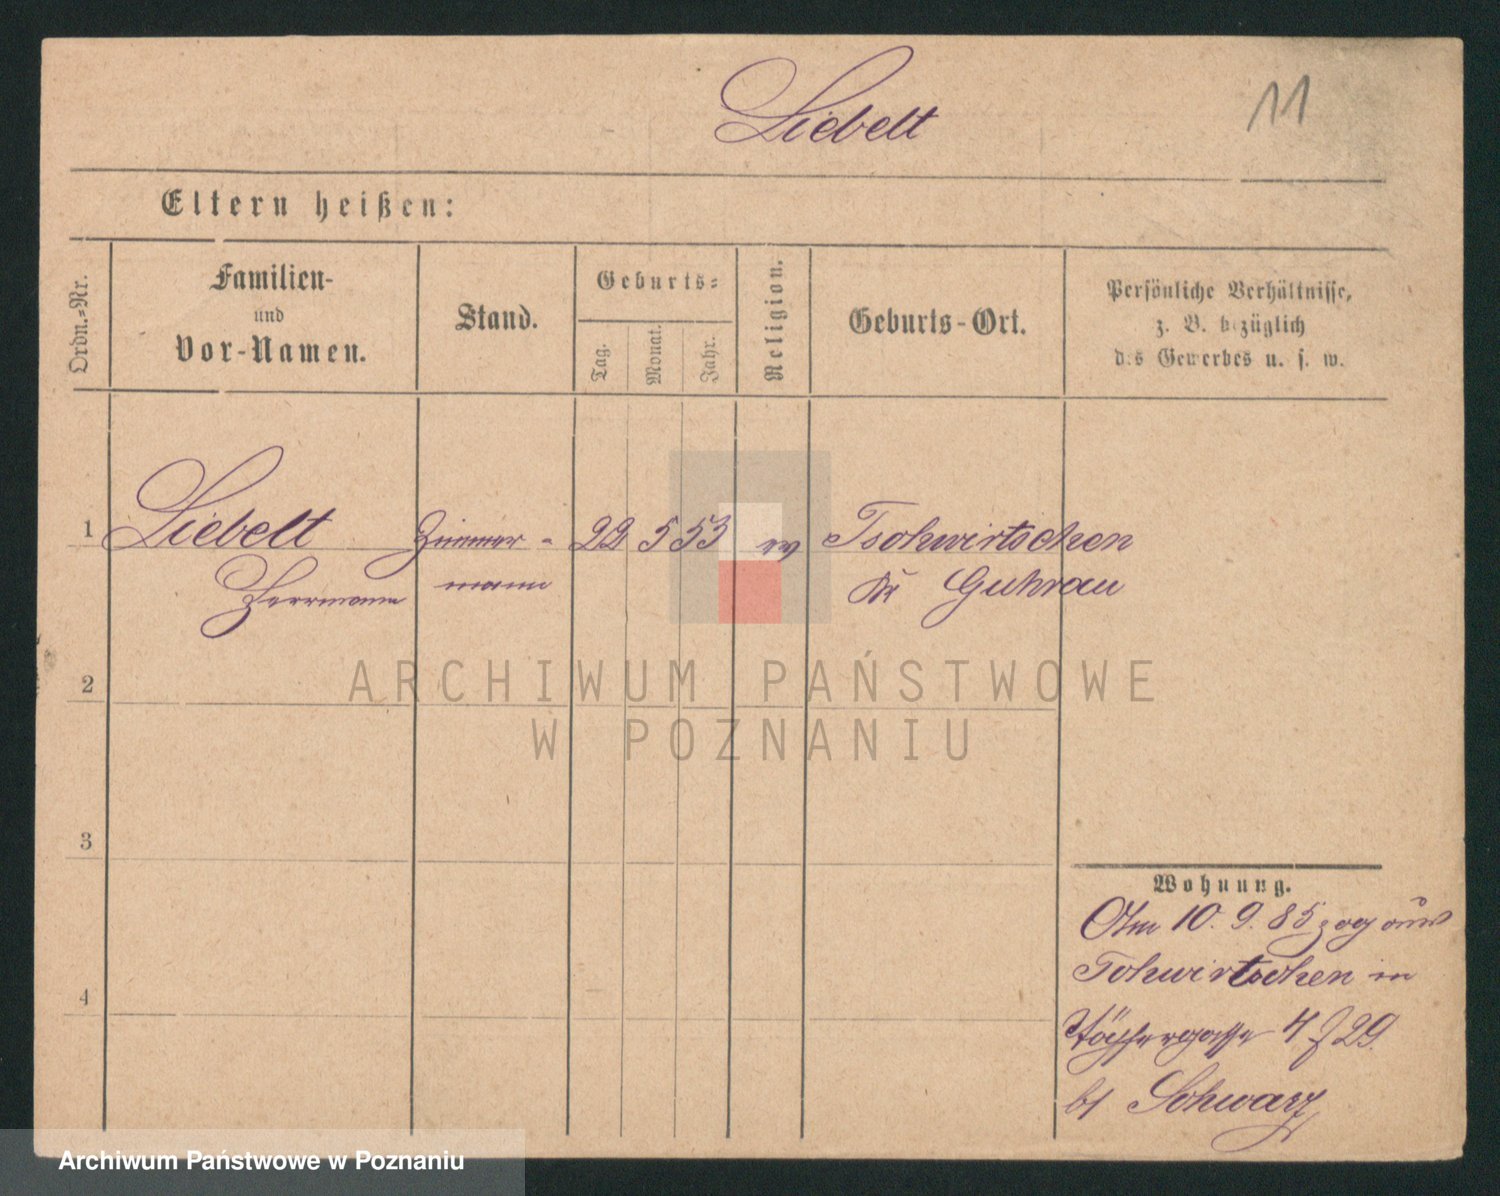 Liebelt
11
Eltern heißen:
Ordn.=Nr.
Familien-
und
Vor-Namen.
Stand.
Geburts=
Tag.
Monat.
Jahr.
Religion.
Geburts-Ort.
Persönliche Verhältnisse,
z. B. bezüglich
des Gewerbes u. s. w.
1
Liebelt
Herrmann
Zimmer-
mann
22
5
53
ev
Tschwirtschen
Kr Guhrau
2
3
4
Wohnung.
Am 10. 9. 85 zog aus
Tschwirtschen in
4 J 29.
bei Schwarz
ARCHIWUM PAŃSTWOWE
W POZNANIU
Archiwum Państwowe w Poznaniu